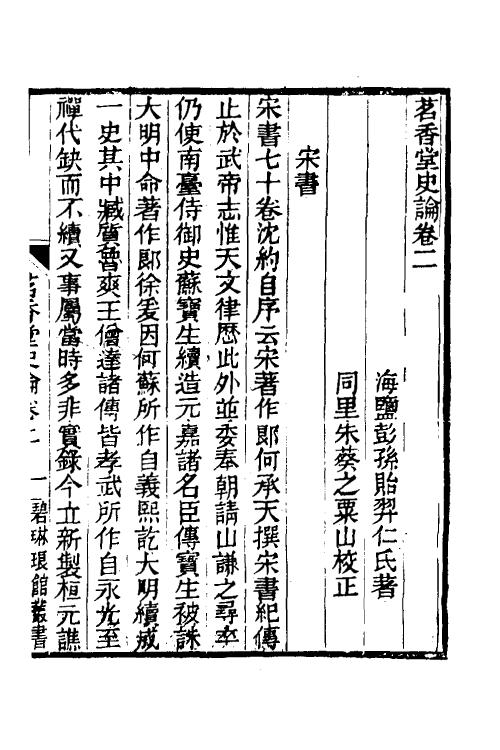 茗香堂史論卷二
海鹽彭孫貽羿仁氏著
同里朱葵之粟山校正
宋書
宋書七十卷沈約自序云宋著作郎何承天撰宋書紀傳
止於武帝志惟天文律歷此外並委奉朝請山謙之尋卒
仍使南臺侍御史蘇寶生續造元嘉諸名臣傳寶生被誅
大明中命著作郎徐爰因何蘇所作自義熙訖大明續成
一史其中臧質魯爽王僧達諸傳皆孝武所作自永光至
禪代缺而不續又事屬當時多非實錄今立新製桓元譙
茗香堂史論卷二 一 碧琳琅館叢書